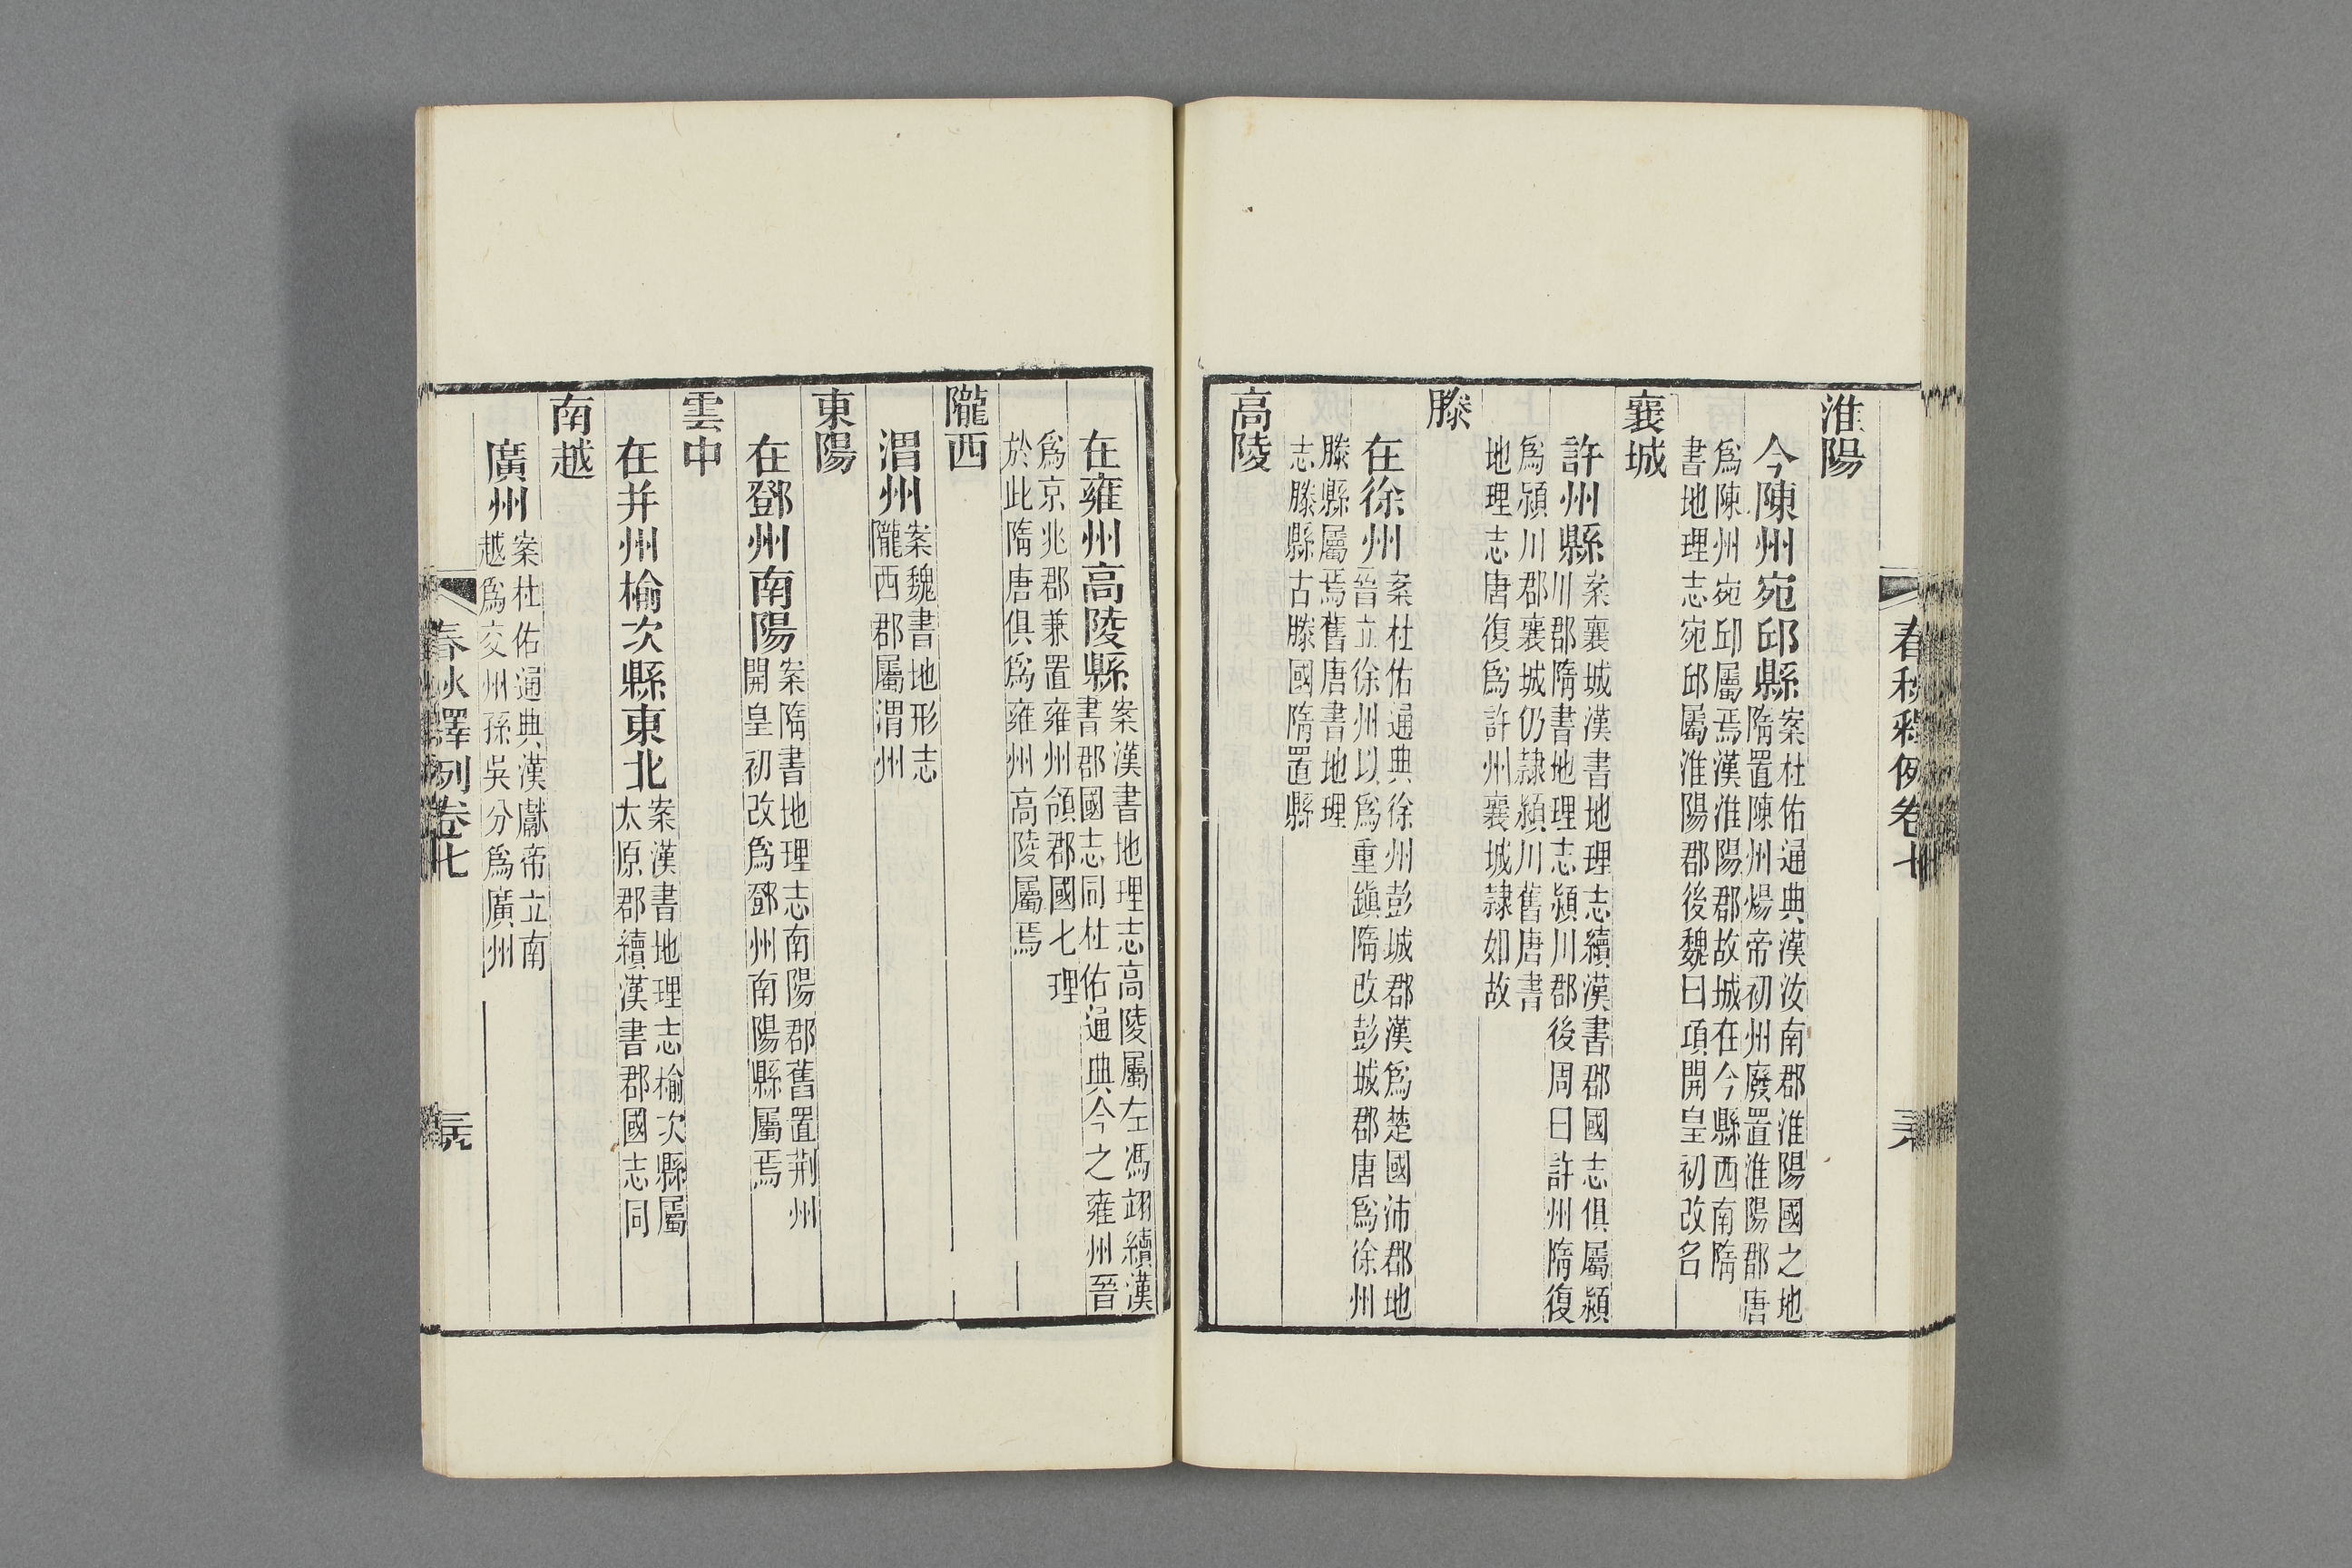 淮陽
今陳州宛邱縣案杜佑通典漢汝南郡淮陽國之地
隋置陳州煬帝初州廢置淮陽郡唐
爲陳州宛邱屬焉漢淮陽郡故城在今縣西南隋
書地理志宛邱屬淮陽郡後魏曰項開皇初改名
襄城
許州縣案襄城漢書地理志續漢書郡國志俱屬潁
川郡隋書地理志潁川郡後周曰許州隋復
爲潁川郡襄城仍隷潁川舊唐書
地理志唐復爲許州襄城隷如故
滕
在徐州案杜佑通典徐州彭城郡漢爲楚國沛郡地
晉立徐州以爲重鎮隋改彭城郡唐爲徐州
滕縣屬焉舊唐書地理
志滕縣古滕國隋置縣
高陵
春秋釋例卷七
在雍州高陵縣案漢書地理志高陵屬左馮翊續漢
書郡國志同杜佑通典今之雍州晉
爲京兆郡兼置雍州領郡國七理
於此隋唐俱爲雍州高陵屬焉
隴西
渭州案魏書地形志
隴西郡屬渭州
東陽
在鄧州南陽案隋書地理志南陽郡舊置荆州
開皇初改爲鄧州南陽縣屬焉
雲中
在并州榆次縣東北案漢書地理志榆次縣屬
太原郡續漢書郡國志同
南越
廣州案杜佑通典漢獻帝立南
越爲交州孫吳分爲廣州
春秋釋例卷七